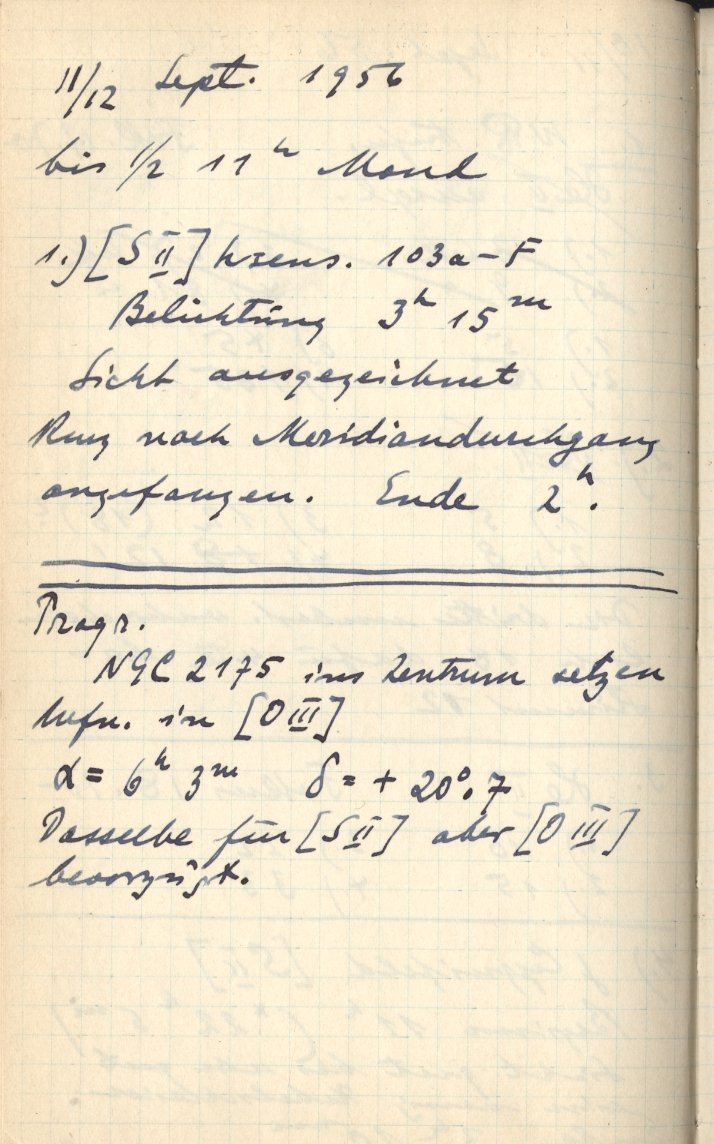 11/12 Sept. 1956
bis 1/2 11 h Mond
1.) [S II] hsens. 103a-F
Belichtung 3 h 15 m
Sicht ausgezeichnet
Kurz nach Meridiandurchgang
angefangen. Ende 2 h.
Progr.
NGC 2175 ins Zentrum setzen
Aufn. in [O III]
α = 6 h 3 m δ = + 20°.7
Dasselbe für [S II] aber [O III]
bevorzugt.